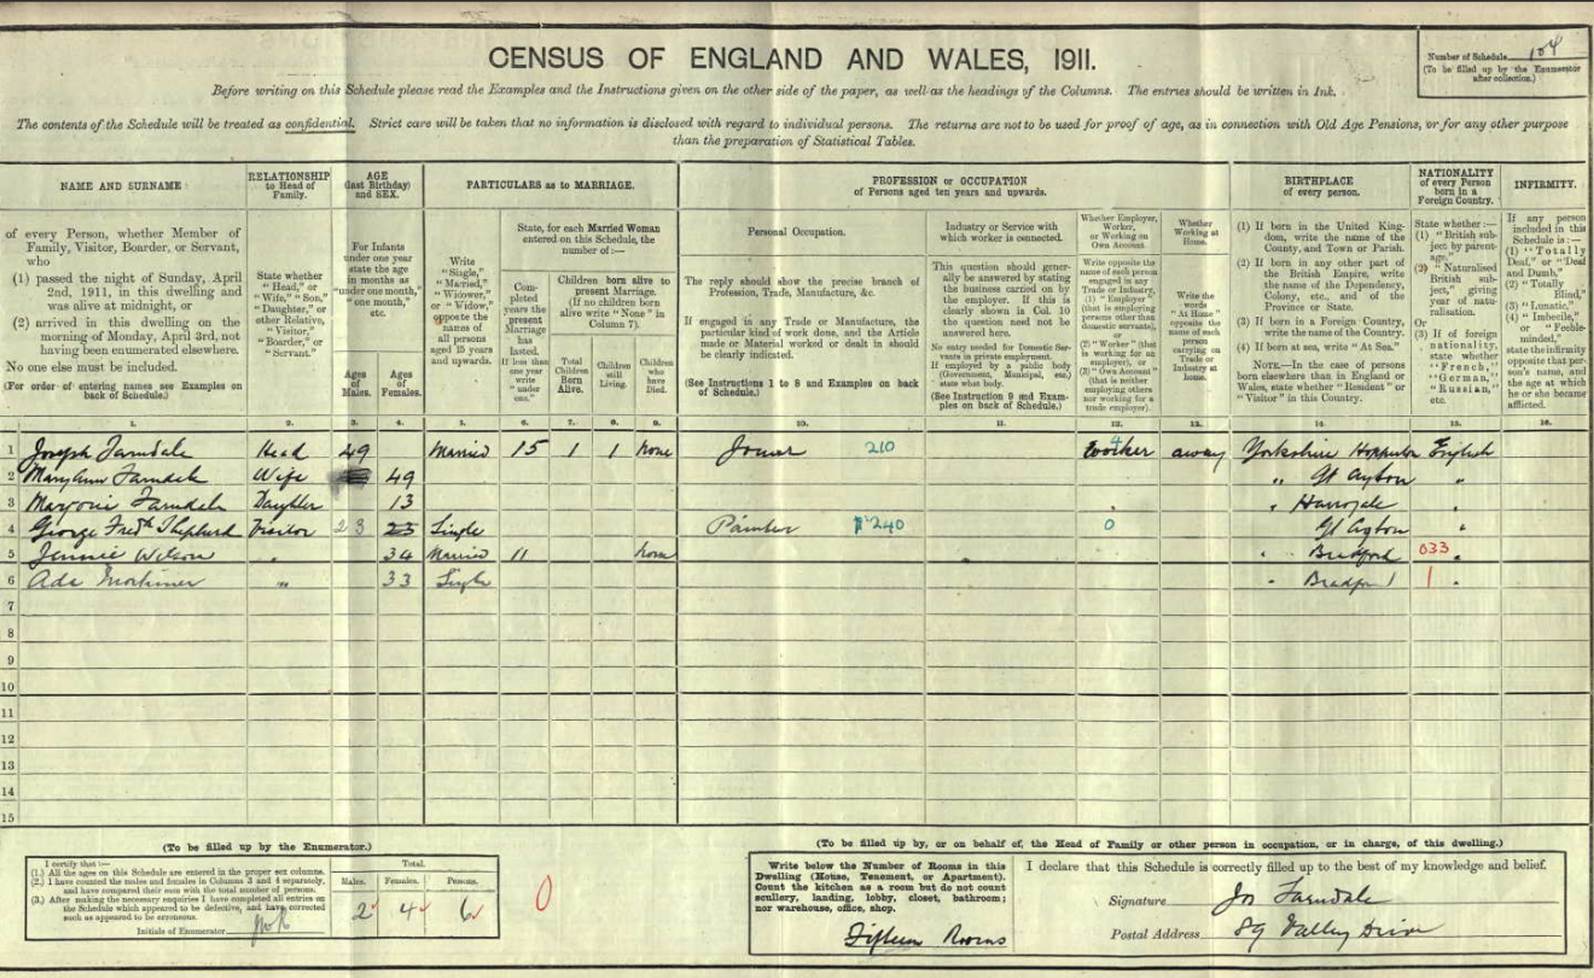 CENSUS OF ENGLAND AND WALES, 1911.
Number of Schedule 104
(To be filled up by the Enumerator
after collection.)
Before writing on this Schedule please read the Examples and the Instructions given on the other side of the paper, as well as the headings of the Columns. The entries should be written in Ink.
The contents of the Schedule will be treated as confidential. Strict care will be taken that no information is disclosed with regard to individual persons. The returns are not to be used for proof of age, as in connection with Old Age Pensions, or for any other purpose
than the preparation of Statistical Tables.
NAME AND SURNAME
of every Person, whether Member of
Family, Visitor, Boarder, or Servant,
who
(1) passed the night of Sunday, April
2nd, 1911, in this dwelling and
was alive at midnight, or
(2) arrived in this dwelling on the
morning of Monday, April 3rd, not
having been enumerated elsewhere.
No one else must be included.
(For order of entering names see Examples on
back of Schedule.)
RELATIONSHIP
to Head of
Family.
State whether
"Head," or
"Wife," "Son,"
"Daughter," or
other Relative,
"Visitor,"
"Boarder," or
"Servant."
AGE
(last Birthday)
and SEX.
For Infants
under one year
state the age
in months as
"under one month,"
"one month,"
etc.
Ages
of
Males.
Ages
of
Females.
PARTICULARS as to MARRIAGE.
Write
"Single,"
"Married,"
"Widower,"
or "Widow,"
opposite the
names of
all persons
aged 15 years
and upwards.
State, for each Married Woman
entered on this Schedule, the
number of:—
Com-
pleted
years the
present
Marriage
has
lasted.
If less than
one year
write
"under
one."
Children born alive to
present Marriage.
(If no children born
alive write "None" in
Column 7).
Total
Children
Born
Alive.
Children
still
Living.
Children
who
have
Died.
PROFESSION or OCCUPATION
of Persons aged ten years and upwards.
Personal Occupation.
The reply should show the precise branch of
Profession, Trade, Manufacture, &c.
If engaged in any Trade or Manufacture, the
particular kind of work done, and the Article
made or Material worked or dealt in should
be clearly indicated.
(See Instructions 1 to 8 and Examples on back
of Schedule.)
Industry or Service with
which worker is connected.
This question should gener-
ally be answered by stating
the business carried on by
the employer. If this is
clearly shown in Col. 10
the question need not be
answered here.
No entry needed for Domestic Ser-
vants in private employment.
If employed by a public body
(Government, Municipal, etc.)
state what body.
(See Instruction 9 and Exam-
ples on back of Schedule.)
Whether Employer,
Worker,
or Working on
Own Account.
Write opposite the
name of each person
engaged in any
Trade or Industry,
(1) "Employer"
(that is employing
persons other than
domestic servants),
or
(2) "Worker" (that
is working for an
employer), or
(3) "Own Account"
(that is neither
employing others
nor working for a
trade employer).
Whether
Working at
Home.
Write the
words
"At Home"
opposite the
name of each
person
carrying on
Trade or
Industry at
home.
BIRTHPLACE
of every person.
(1) If born in the United King-
dom, write the name of the
County, and Town or Parish.
(2) If born in any other part of
the British Empire, write
the name of the Dependency,
Colony, etc., and of the
Province or State.
(3) If born in a Foreign Country,
write the name of the Country.
(4) If born at sea, write "At Sea."
NOTE.—In the case of persons
born elsewhere than in England or
Wales, state whether "Resident" or
"Visitor" in this Country.
NATIONALITY
of every Person
born in a
Foreign Country.
State whether:—
(1) "British sub-
ject by parent-
age,"
(2) "Naturalised
British sub-
ject," giving
year of natu-
ralisation.
Or
(3) If of foreign
nationality,
state whether
"French,"
"German,"
"Russian,"
etc.
INFIRMITY.
If any person
included in this
Schedule is:—
(1) "Totally
Deaf," or "Deaf
and Dumb,"
(2) "Totally
Blind,"
(3) "Lunatic,"
(4) "Imbecile,"
or "Feeble-
minded,"
state the infirmity
opposite that per-
son's name, and
the age at which
he or she became
afflicted.
1. 2. 3. 4. 5. 6. 7. 8. 9. 10. 11. 12. 13. 14. 15. 16.
1 Joseph Farndale Head 49 Married 15 1 1 None Joiner 210 Worker 4 away Yorkshire English
2 Mary Ann Farndale Wife 49 " Gt Ayton "
3 Marjorie Farndale Daughter 13 " Harrogate "
4 George Fredk Shepherd Visitor 23 23 Single Painter 240 0 Gt Ayton "
5 Jennie Wilson " 34 Married 11 None " Bradford 033 "
6 Ada Mortimer " 33 Single " Bradford 1 "
7
8
9
10
11
12
13
14
15
(To be filled up by the Enumerator.)
I certify that:—
(1.) All the ages on this Schedule are entered in the proper sex columns.
(2.) I have counted the males and females in Columns 3 and 4 separately,
and have compared their sum with the total number of persons.
(3.) After making the necessary enquiries I have completed all entries on
the Schedule which appeared to be defective, and have corrected
such as appeared to be erroneous.
Initials of Enumerator
Total.
Males. Females. Persons.
2 4 6
0
(To be filled up by, or on behalf of, the Head of Family or other person in occupation, or in charge, of this dwelling.)
Write below the Number of Rooms in this
Dwelling (House, Tenement, or Apartment).
Count the kitchen as a room but do not count
scullery, landing, lobby, closet, bathroom;
nor warehouse, office, shop.
Fifteen Rooms
I declare that this Schedule is correctly filled up to the best of my knowledge and belief.
Signature Jos Farndale
Postal Address 89 Valley Drive